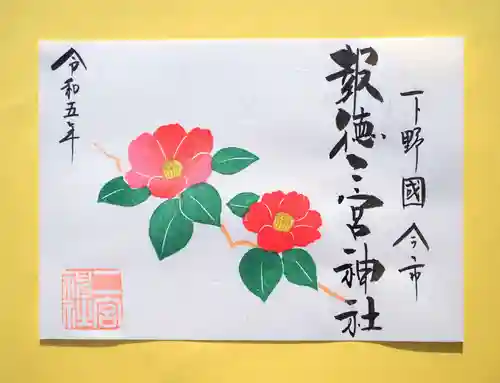 下野國 今市
報徳二宮神社
令和五年
二宮
神社